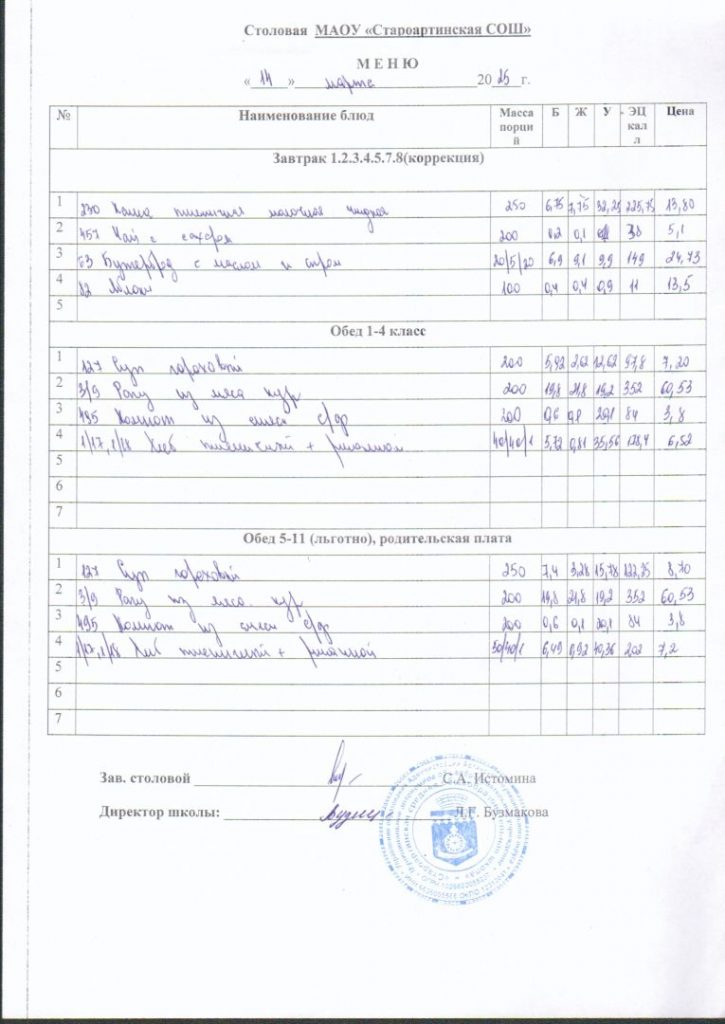 Столовая МАОУ «Староартинская СОШ»
М Е Н Ю
« 14 » марта 2025 г.
№ Наименование блюд Масса порций Б Ж У ЭЦ калл Цена
Завтрак 1.2.3.4.5.7.8(коррекция)
1 230 Каша пшеничная молочная жидкая 250 6,75 7,75 32,25 225,75 13,80
2 457 Чай с сахаром 200 0,2 0,1 38 5,1
3 63 Бутерброд с маслом и сыром 20/5/20 6,9 9,1 9,9 149 24,73
4 82 Яблоки 100 0,4 0,4 0,9 11 13,5
5
Обед 1-4 класс
1 127 Суп гороховый 200 5,92 2,62 12,62 97,8 7,20
2 3/9 Рагу из мяса кур 200 19,8 21,8 19,2 352 60,53
3 495 Компот из смеси с/фр 200 0,6 0,1 20,1 84 3,8
4 1/17,1/18 Хлеб пшеничный + ржаной 40/40/1 5,72 0,81 35,56 178,4 6,52
5
6
7
Обед 5-11 (льготно), родительская плата
1 127 Суп гороховый 250 7,4 3,28 15,78 122,25 8,70
2 3/9 Рагу из мяса кур 200 19,8 21,8 19,2 352 60,53
3 495 Компот из смеси с/фр 200 0,6 0,1 20,1 84 3,8
4 1/17,1/18 Хлеб пшеничный + ржаной 50/40/1 6,49 0,92 40,36 202 7,2
5
6
7
Зав. столовой С.А. Истомина
Директор школы: Л.Г. Бузмакова